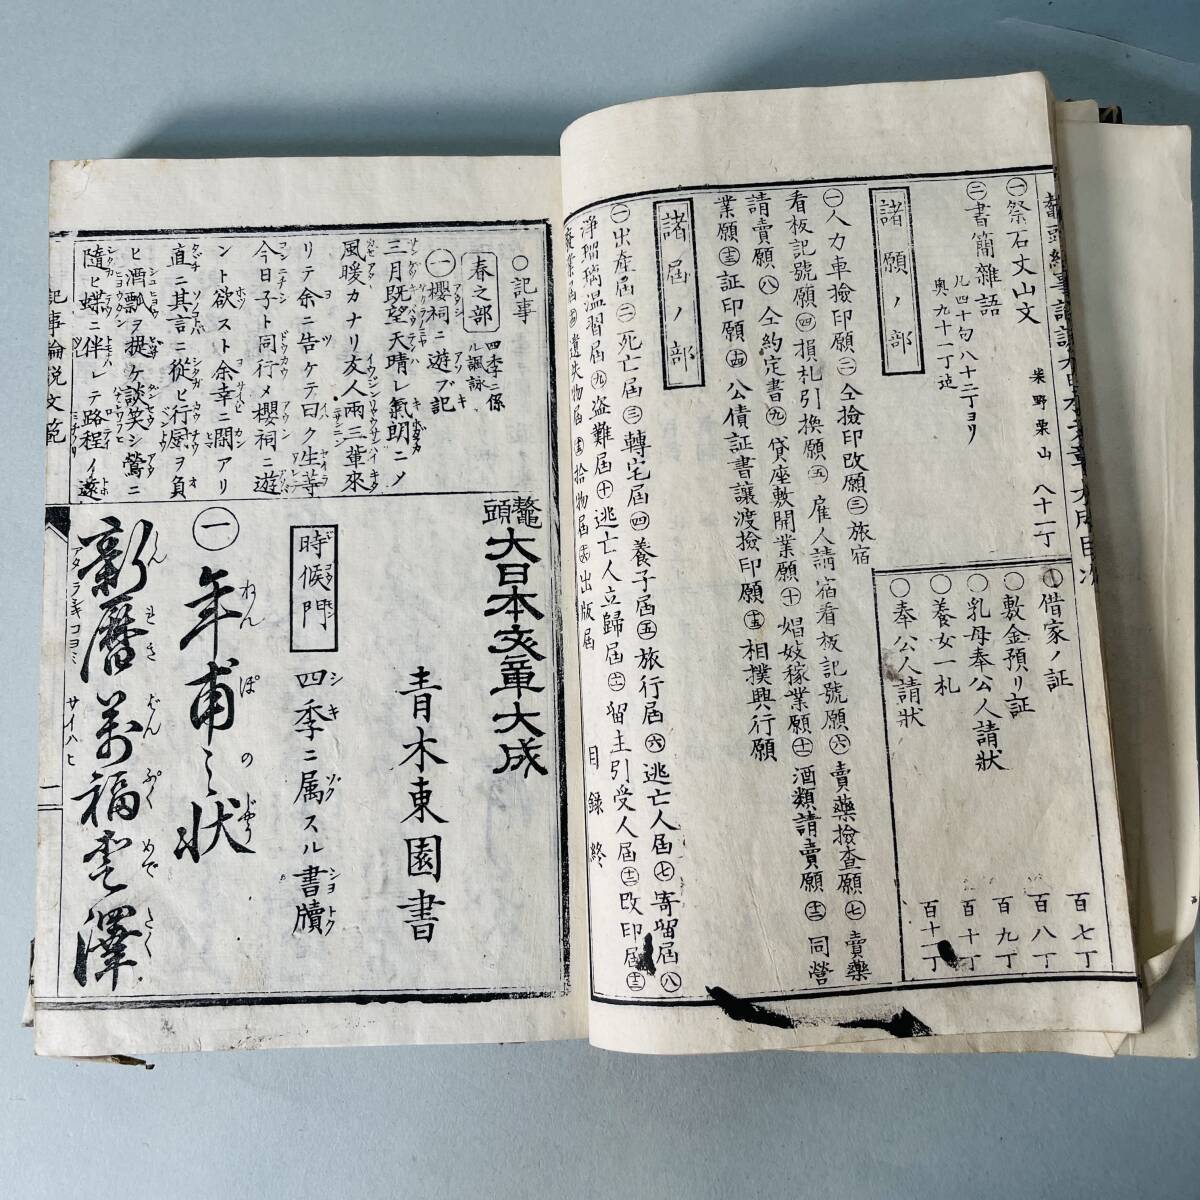 ㊀祭石丈山文 柴野栗山 八十一丁
㊁書簡雜語
凡四十句八十二丁ヨリ
奥九十一丁迠
諸願ノ部
㊀人力車撿印願㊁仝撿印改願㊂旅宿
看板記號願㊃損札引換願㊄雇人請宿看板記號願㊅賣藥撿查願㊆賣藥
請賣願㊇仝約定書㊈貸座敷開業願㊉娼妓稼業願㊉一酒類請賣願㊉二同營
業願㊉三証印願㊉四公債証書讓渡撿印願㊉五相撲興行願
諸屆ノ部
㊀出産屆㊁死亡屆㊂轉宅屆㊃養子屆㊄旅行屆㊅逃亡人屆㊆寄留屆㊇
淨瑠璃温習屆㊈盗難屆㊉逃亡人立歸屆㊉一留主引受人屆㊉二改印屆㊉三
廢業屆㊉四遺失物屆㊉五拾物屆㊉六出版屆 目錄終
○借家ノ証 百七丁
○敷金預リ証 百八丁
○乳母奉公人請狀 百九丁
○養女一札 百十丁
○奉公人請狀 百十一丁
○記事
春之部 四季ニ係ル諷詠
㊀櫻祠ニ遊ブ記
三月既望天晴レ氣朗ニメ
風暖カナリ友人兩三輩來
リテ余ニ告ケテ曰ク生等
今日子ト同行メ櫻祠ニ遊
ント欲ス余幸ニ閑アリ
直ニ其言ニ從ヒ行厨ヲ負
ヒ酒瓢ヲ提ケ談笑シ鶯ニ
隨ヒ蝶ニ伴レテ路程ノ遠
記事論説文範
鼇頭大日本文章大成
青木東園書
時候門 四季ニ属スル書牘
㊀年甫之状
新暦萬福芽澤